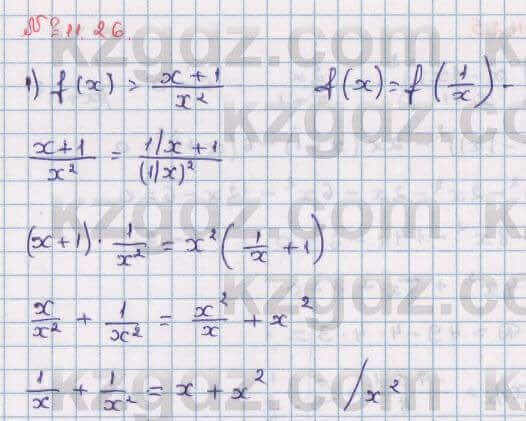 № 11.26.
1) f(x) = (x+1)/x² f(x) = f(1/x) -
(x+1)/x² = (1/x + 1)/(1/x)²
(x+1) · 1/x² = x² (1/x + 1)
x/x² + 1/x² = x²/x + x²
1/x + 1/x² = x + x² /x²
kzgdz.com